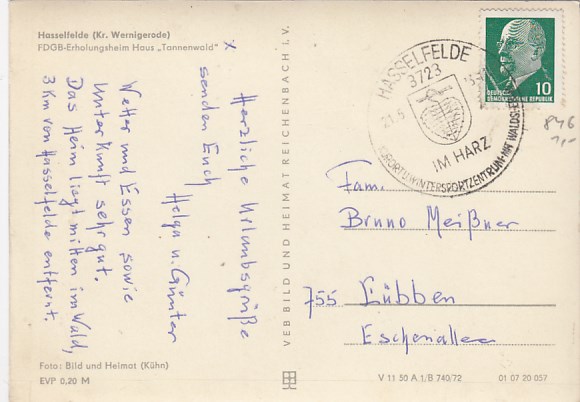 Hasselfelde (Kr. Wernigerode)
FDGB-Erholungsheim Haus „Tannenwald" x
Herzliche Urlaubsgrüße
senden Euch
Helga u. Günter
Wetter und Essen sowie
Unterkunft sehr gut.
Das Heim liegt mitten im Wald,
3 Km von Hasselfelde entfernt.
Foto: Bild und Heimat (Kühn)
EVP 0,20 M
VEB BILD UND HEIMAT REICHENBACH i. V.
HASSELFELDE
3723
21.6
IM HARZ
KURORT U. WINTERSPORTZENTRUM MIT
DEUTSCHE
DEMOKRATISCHE REPUBLIK
10
846
1,-
Fam.
Bruno Meißner
755 Lübben
Eschenallee
V 11 50 A 1/B 740/72
01 07 20 057